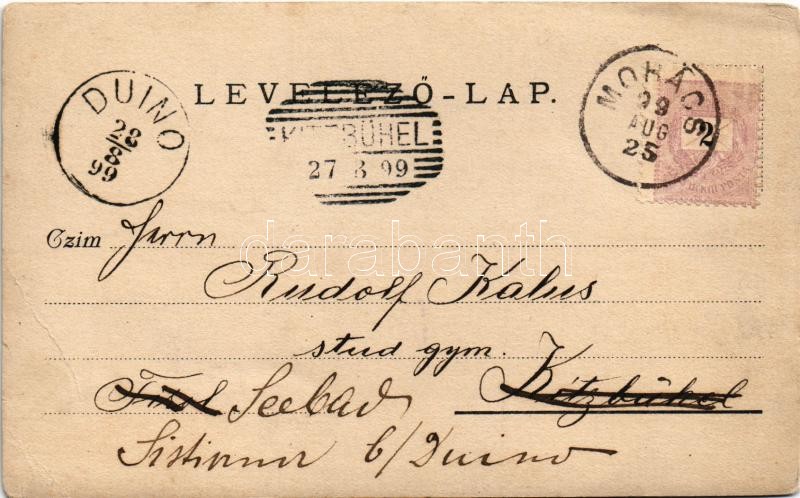 LEVELEZŐ-LAP.
DUINO
28
8
99
KITZBÜHEL
27 8 99
MOHÁCS
99
AUG
25
2
Czim Herrn
Rudolf Kalus
stud gym.
Tirol Seebad Kitzbühel
Sistiana b/Duino
darabanth